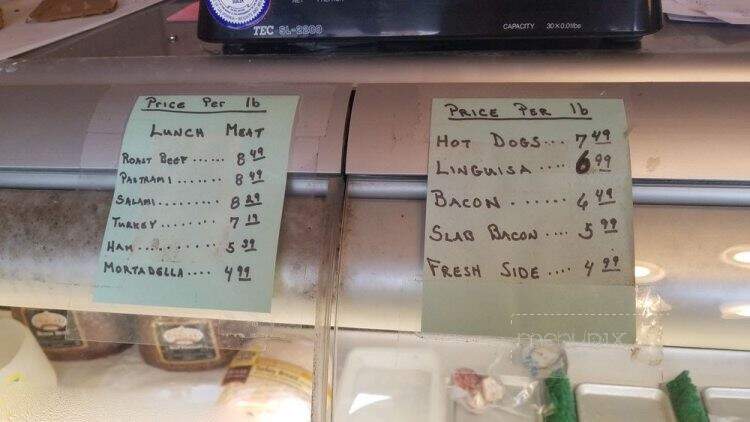 TEC SL-2200
CAPACITY 30 x 0.01 lbs
PRICE PER lb
LUNCH MEAT
ROAST BEEF...... 8 49
PASTRAMI....... 8 49
SALAMI......... 8 29
TURKEY....... 7 19
HAM.......... 5 39
MORTADELLA.... 4 99
PRICE PER lb
HOT DOGS... 7 49
LINGUISA .... 6 99
BACON...... 6 49
SLAB BACON.... 5 99
FRESH SIDE.... 4 99
menupix